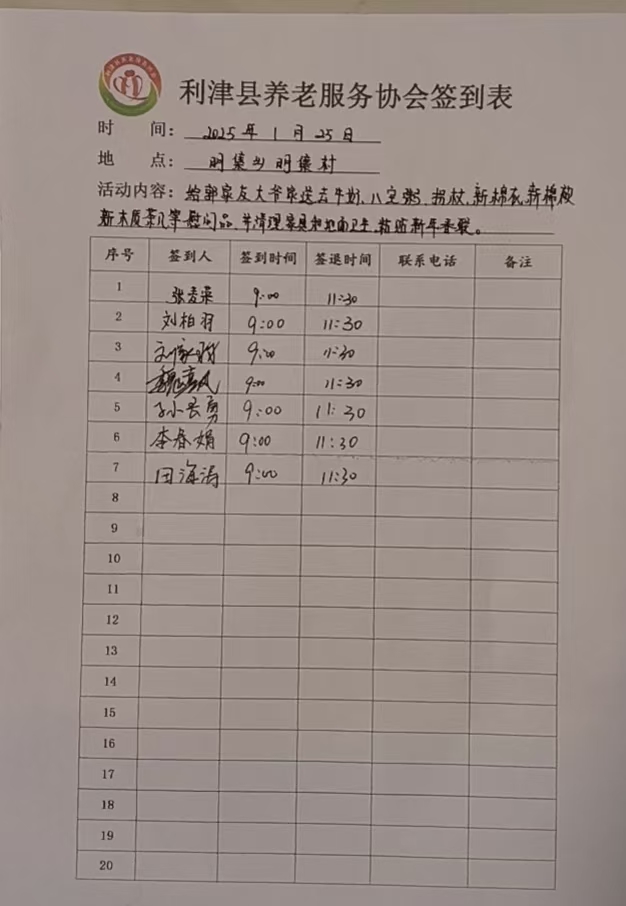 利津县养老服务协会签到表
时 间： 2025年1月25日
地 点： 明集乡明集村
活动内容：给郭家友大爷家送去牛奶、八宝粥、拐杖、新棉衣、新棉被
新木质茶几等慰问品，并清理家具和地面卫生，粘贴新年春联。
序号 签到人 签到时间 签退时间 联系电话 备注
1 9:00 11:30
2 刘柏羽 9:00 11:30
3 9:00 11:30
4 9:00 11:30
5 9:00 11:30
6 李春娟 9:00 11:30
7 田海涛 9:00 11:30
8
9
10
11
12
13
14
15
16
17
18
19
20